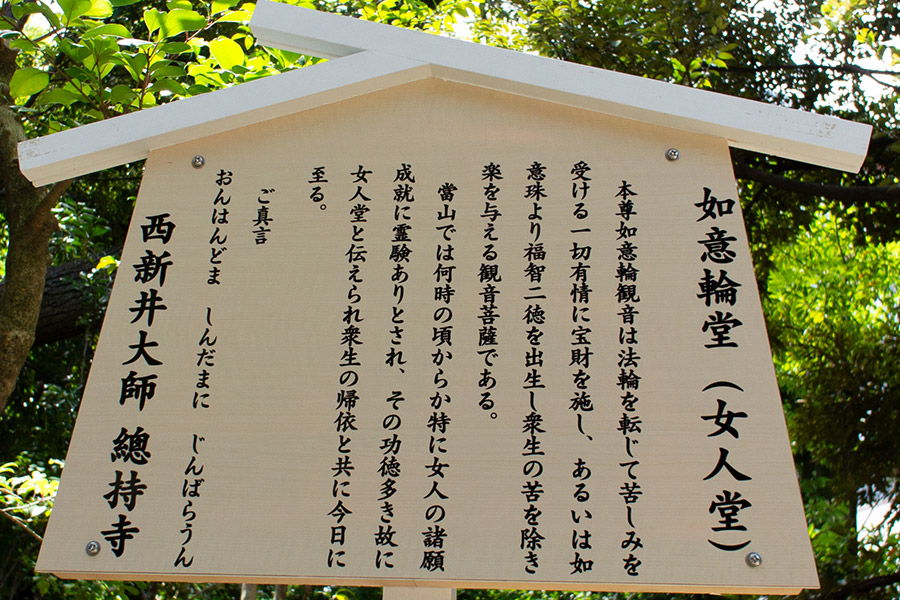 如意輪堂（女人堂）
本尊如意輪観音は法輪を転じて苦しみを
受ける一切有情に宝財を施し、あるいは如
意珠より福智二徳を出生し衆生の苦を除き
楽を与える観音菩薩である。
當山では何時の頃からか特に女人の諸願
成就に霊験ありとされ、その功徳多き故に
女人堂と伝えられ衆生の帰依と共に今日に
至る。
ご真言
おんはんどま　しんだまに　じんばらうん
西新井大師 總持寺